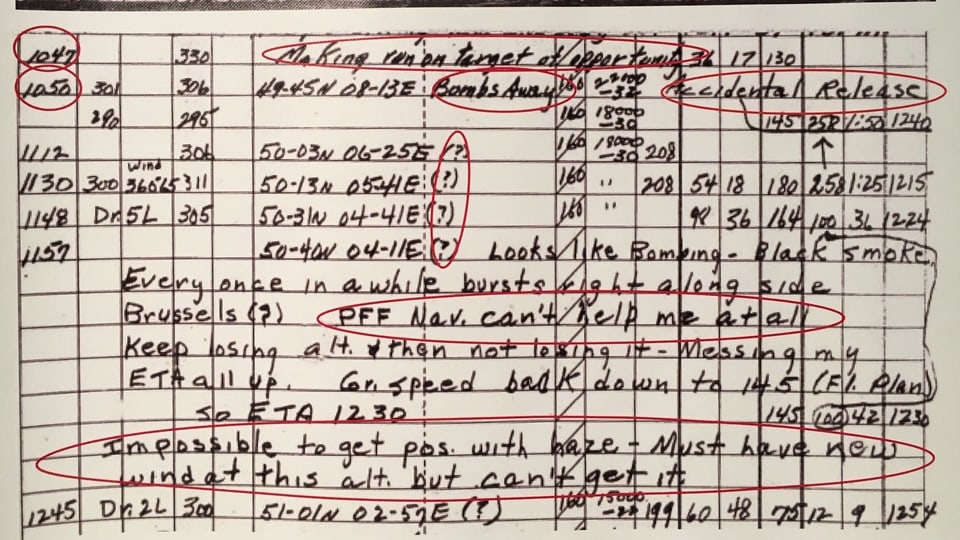 1047 330 Making run on target of opportunity 36 17 130
1050 301 306 49-45N 08-13E Bombs Away 160 22000 -32 Accidental Release
290 295 160 18000 -30 145 258 1:50 1240
1112 306 50-03N 06-25E (?) 160 18000 -30 208
wind
1130 300 360/65 311 50-13N 05-41E (?) 160 " 208 54 18 180 258 1:25 1215
1148 Dr. 5L 305 50-31N 04-41E (?) 160 " 98 36 164 100 36 1224
1157 50-40N 04-11E (?) Looks like Bombing - Black smoke
Every once in a while bursts right along side
Brussels (?) PFF Nav. can't help me at all
Keep losing alt. & then not losing it - Messing my
ETA all up. Gr. speed back down to 145 (Fl. Plan)
so ETA 1230 145 100 42 1230
Impossible to get pos. with haze - Must have new
wind at this alt. but can't get it.
1245 Dr. 2L 300 51-01N 02-57E (?) 160 15000 199 60 48 75 12 9 1254